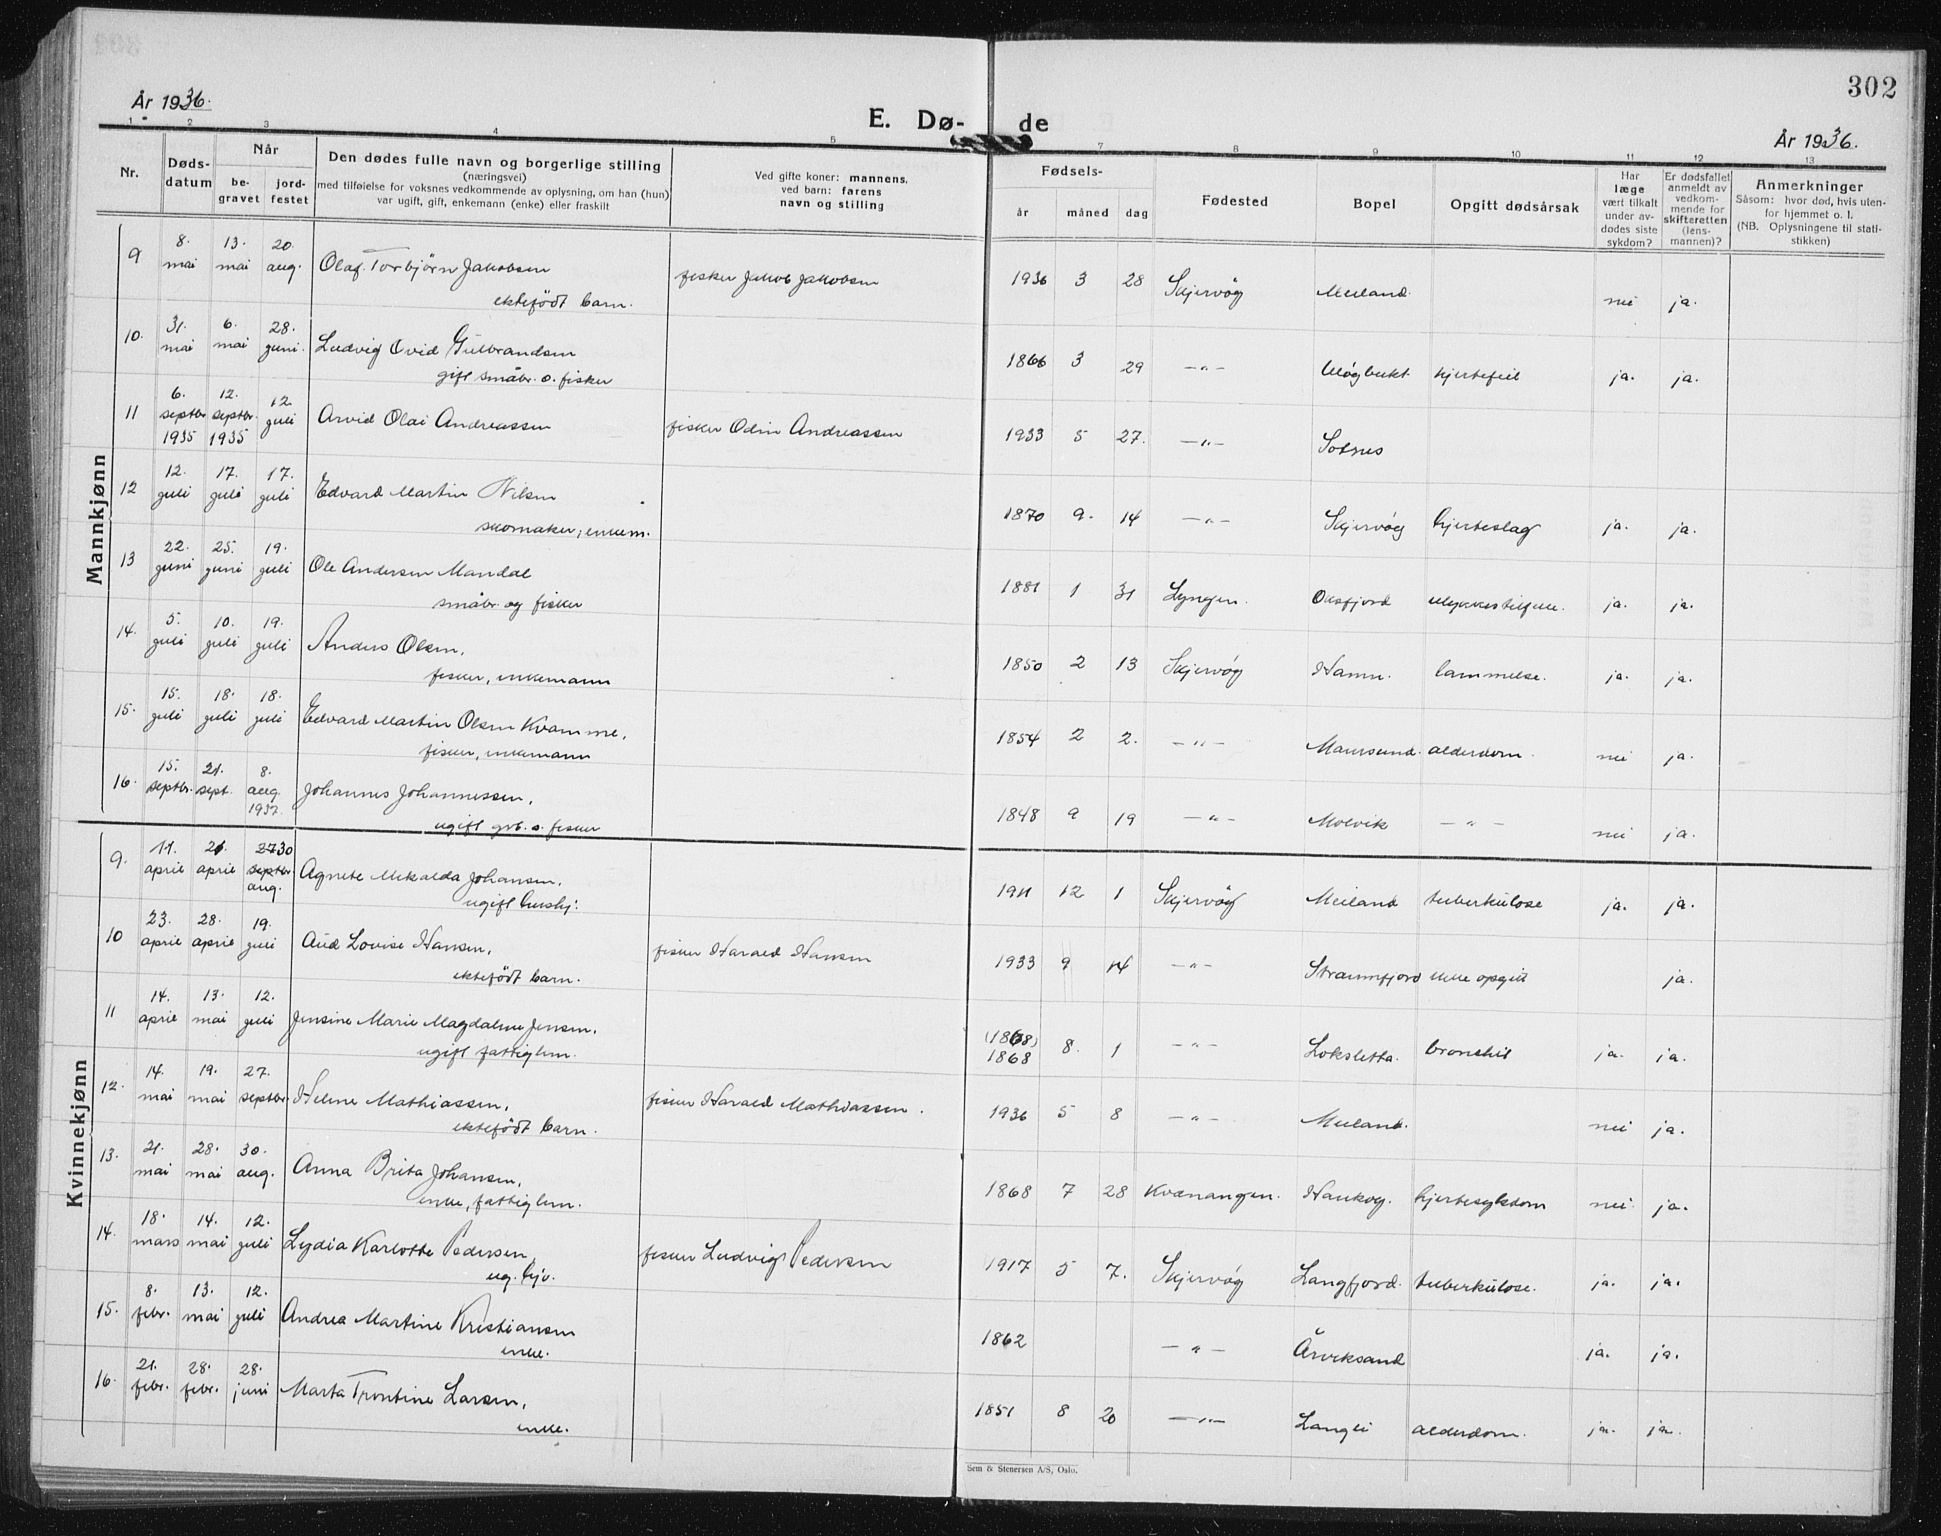 302
År 1936.
E. Dø-
de
År 1936.
1 2 3 4 5 7 8 9 10 11 12 13
Nr.
Døds-
datum
Når
be-
gravet
jord-
festet
Den dødes fulle navn og borgerlige stilling
(næringsvei)
med tilføielse for voksnes vedkommende av oplysning, om han (hun)
var ugift, gift, enkemann (enke) eller fraskilt
Ved gifte koner: mannens,
ved barn: farens
navn og stilling
Fødsels-
år måned dag
Fødested
Bopel
Opgitt dødsårsak
Har
læge
vært tilkalt
under av-
dødes siste
sykdom?
Er dødsfallet
anmeldt av
vedkom-
mende for
skifteretten
(lens-
mannen)?
Anmerkninger
Såsom: hvor død, hvis uten-
for hjemmet o. l.
(NB. Oplysningene til stati-
stikken)
Mannkjønn
9 8. mai 13. mai 20. aug. Olaf Torbjørn Jakobsen fisker Jakob Jakobsen 1936 3 28 Skjervøy Meiland. nei ja.
ektefödt barn.
10. 31. mai 6. mai 28. juni. Ludvig Ovid Gulbrandsen 1866 3 29 —„— hjertefeil ja. ja.
gift småbr. o. fisker
11 6. septbr. 1935 12. septbr. 1935 12 juli Arvid Olai Andreassen fisker Odin Andreassen 1933 5 27. —„— Sotnes
12 12. juli 17. juli 17. juli Edvard Martin Nilsen 1870 9. 14 —„— Skjervøy hjerteslag ja. ja.
skomaker, enkem.
13 22. juni 25. juni 19. juli Ole Andersen Mandal 1881 1 31 Lyngen. Oksfjord ulykkestilfelle. ja. ja.
småbr. og fisker
14. 5. juli 10. juli 19. juli Anders Olsen, 1850 2 13 Skjervøy Hamn. lammelse. ja. ja.
fisker, enkemann
15. 15. juli 18. juli 18. juli Edvard Martin Olsen Kvamme, 1854 2 2. —„— Maursund. alderdom. nei ja.
fisker, enkemann
16. 15. septbr. 21. sept. 8. aug. 1937. Johannes Johannessen, 1848 9 19 —„— Molvik —„— nei ja.
ugift grb. o. fisker
Kvinnekjønn
9. 11. april 21. april 27 30 septbr. aug. Agnete Mekalda Johansen, 1911 12 1 Skjervøy Meiland tuberkulose ja. ja.
ugift hushj.
10 23. april 28. april 19. juli Aud Lovise Hansen, fisker Harald Hansen 1933 9 14 —„— Straumfjord ikke opgitt ja.
ektefödt barn.
11 14. april 13. mai 12. juli Jensine Marie Magdalene Jensen, (1868) 1868 8. 1 —„— Loksletta. bronchit ja. ja.
ugift fattiglem.
12. 14. mai 19. mai 27. septbr. Helene Mathiassen, fisker Harald Mathiassen. 1936 5 8 —„— Meiland. nei ja.
ektefödt barn.
13. 21. mai 28. mai 30. aug. Anna Brita Johansen, 1868 7 28 Kvænangen. Haukøy. hjertesykdom nei ja.
enke, fattiglem.
14. 18. mars 14. mai 12. juli Lydia Karlotte Pedersen, fisker Ludvig Pedersen 1917 5 7. Skjervøy Langfjord. tuberkulose. ja. ja.
ug. hjv.
15. 8. febr. 13. mai 12. juli Andrea Martine Kristiansen 1862 —„— Årviksand ja. ja.
enke.
16. 21. febr. 28. febr. 28. juni Marta Trontine Larsen, 1851 8 20 —„— Langli alderdom. ja. ja.
enke.
Sem & Stenersen A/S, Oslo.